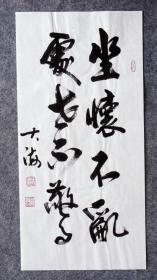 坐懷不亂
處變不驚
大海